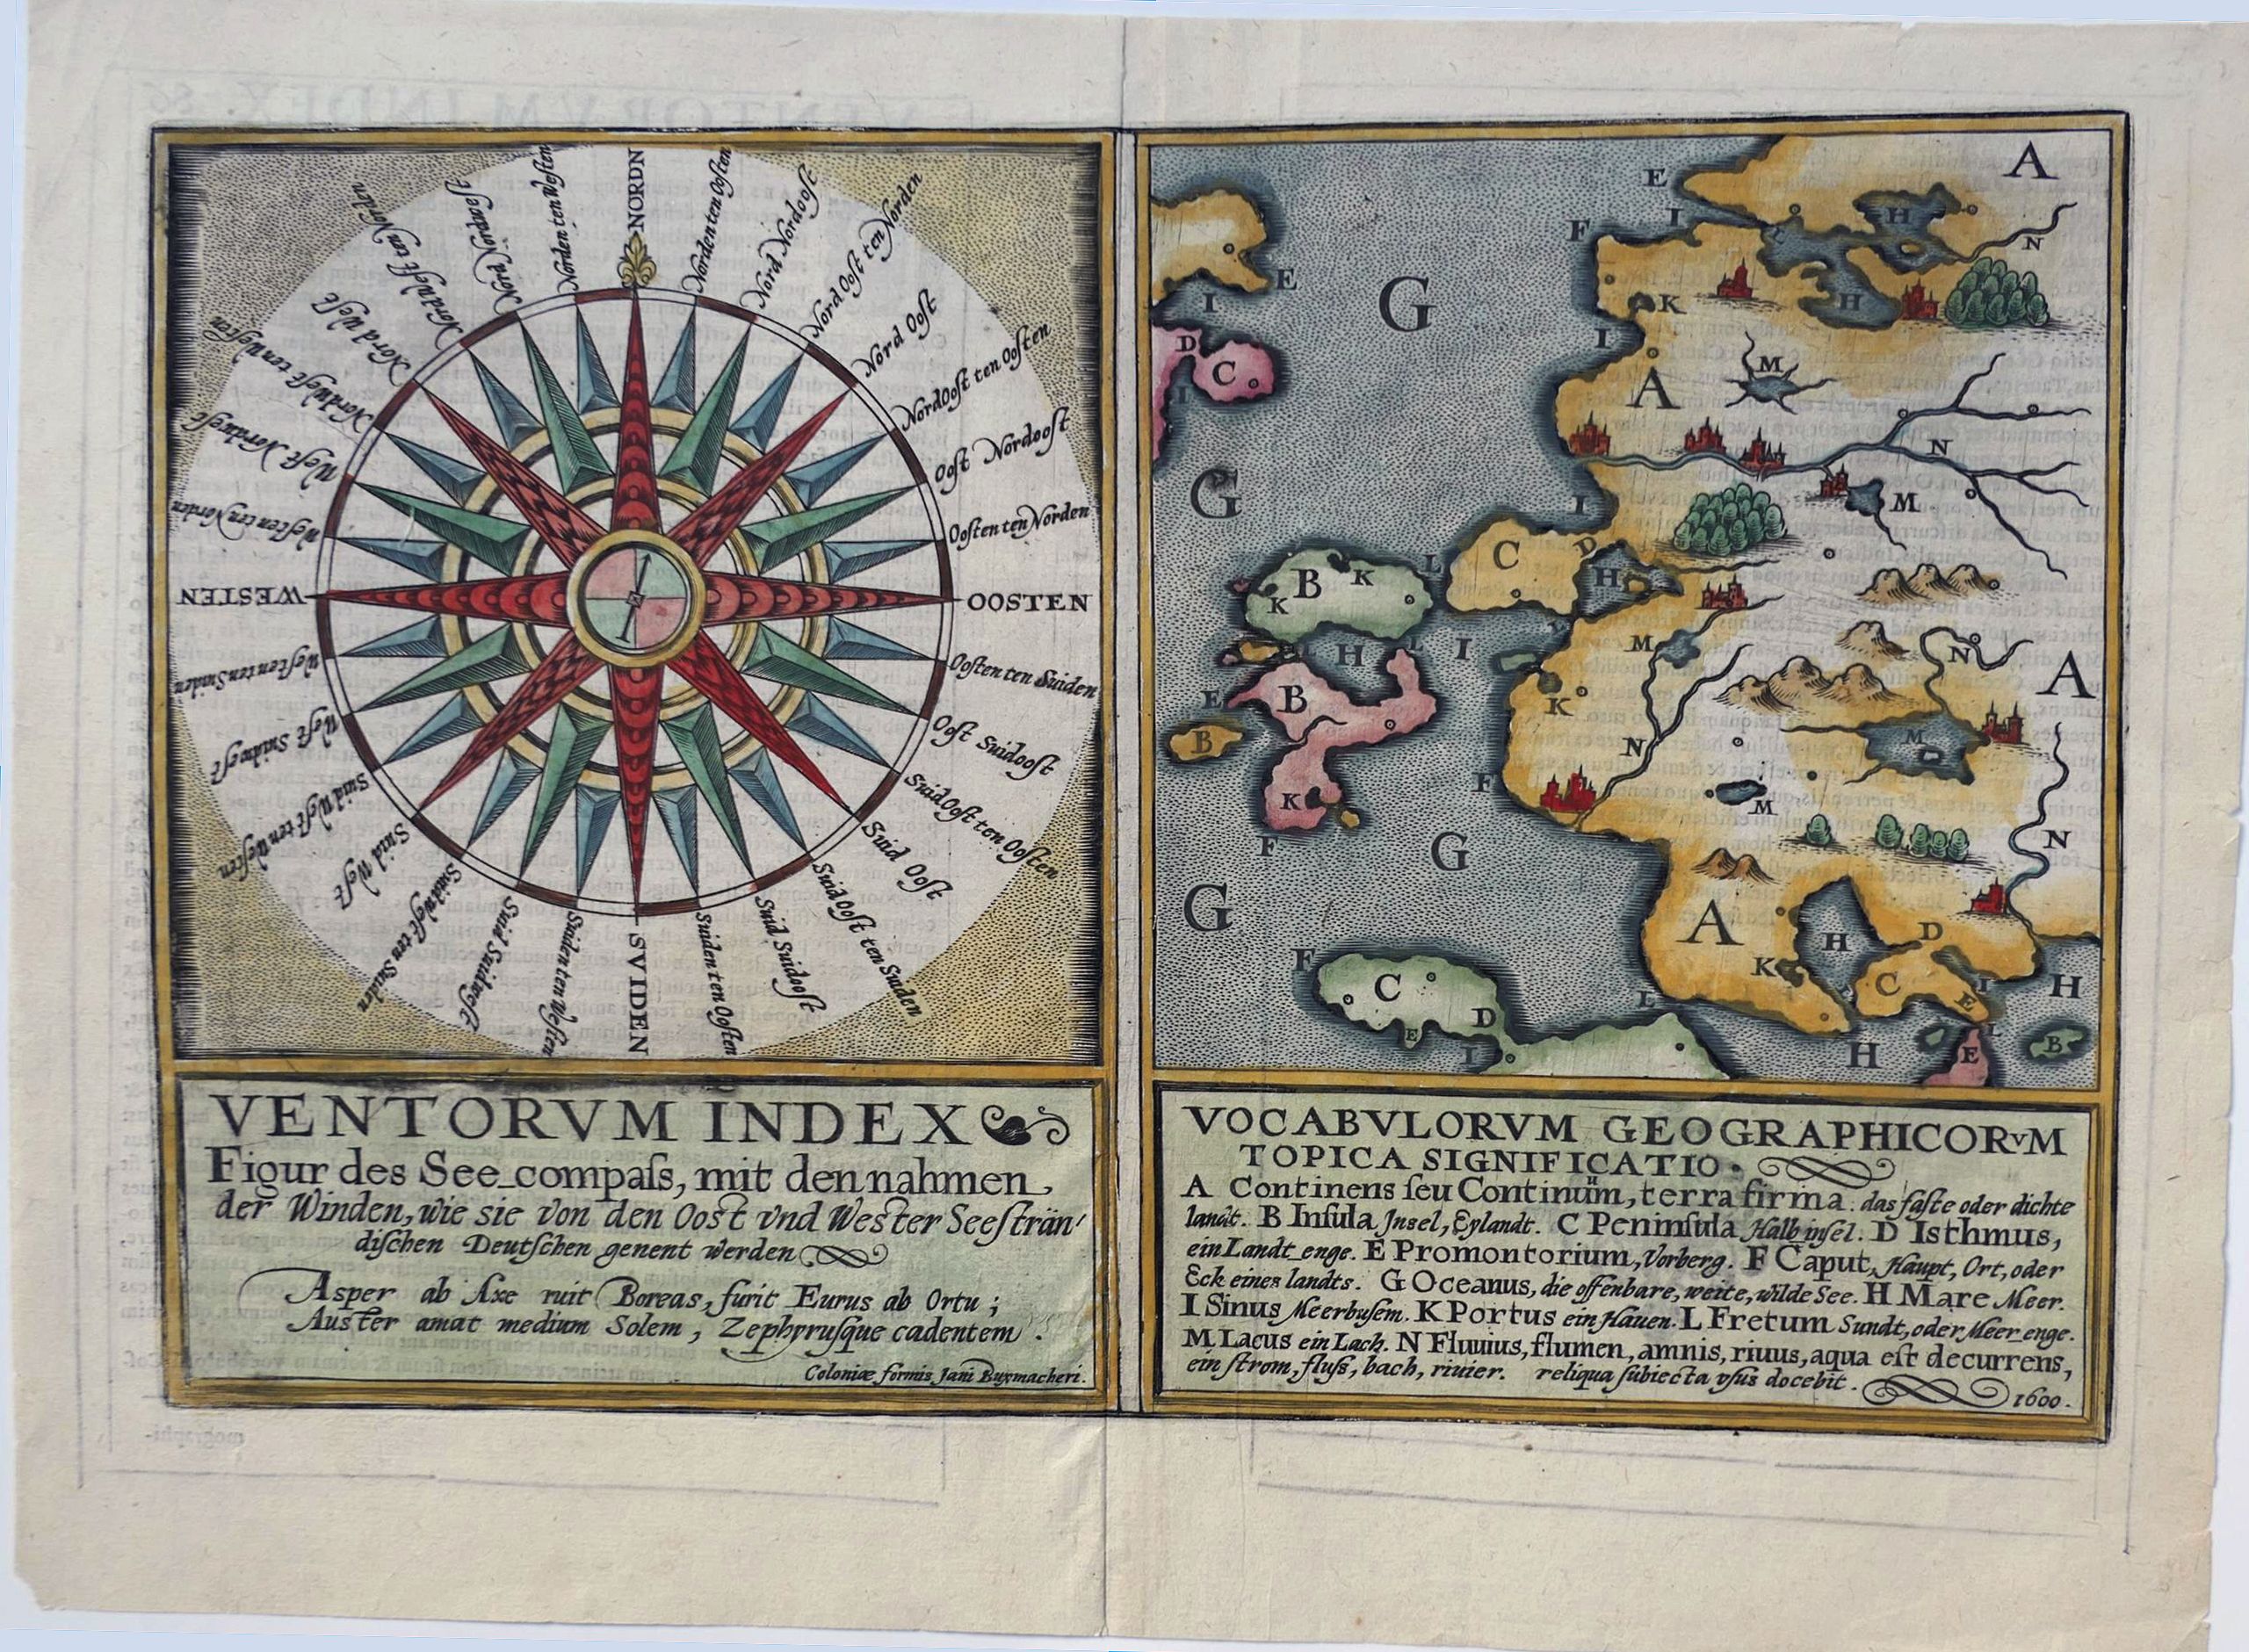 NORDN
Norden ten Oosten
Nord Nordoost
Nord Oost ten Norden
Nord Oost
NordOost ten Oosten
Oost Nordoost
Oosten ten Norden
OOSTEN
Oosten ten Suiden
Oost Suidoost
Suid Oost ten Oosten
Suid Oost
Suid Oost ten Suiden
Suid Suidoost
Suiden ten Oosten
SVIDEN
Suiden ten Westen
Suid Suidwest
Suidwest ten Suiden
Suid West
Suid West ten Westen
West Suidwest
Westen ten Suiden
WESTEN
Westen ten Norden
West Nordwest
Nord West ten Westen
Nord West
Nordwest ten Norden
Nord Nordwest
Norden ten Westen
VENTORVM INDEX
Figur des See_compaſs, mit den nahmen
der Winden, wie sie von den Oost vnd Wester Seeſträn'
diſchen Deutſchen genent werden
Asper ab Axe ruit Boreas, furit Eurus ab Ortu ;
Auster amat medium Solem, Zephyruſque cadentem .
Coloniæ formis Jani Buxmacheri.
A
E
I
H
N
F
E
G
I
K
H
I
D
C
I
A
M
N
G
I
M
L
C
D
H
B
K
K
H
I
M
N
A
E
B
K
B
N
M
F
K
M
G
N
F
G
A
H
D
K
C
F
C
E
I
H
E
D
E
L
I
H
E
B
VOCABVLORVM GEOGRAPHICORVM
TOPICA SIGNIFICATIO.
A Continens ſeu Continuum, terra firma. das faſte oder dichte
landt. B Inſula Jnsel, Eylandt. C Peninſula Halb inſel. D Isthmus,
ein Landt_enge. E Promontorium, Vorberg. F Caput, Haupt, Ort, oder
Eck eines landts. G Oceanus, die offenbare, weite, wilde See. H Mare Meer.
I Sinus Meerbuſem. K Portus ein Hauen. L Fretum Sundt, oder Meer enge.
M Lacus ein Lach. N Fluuius, flumen, amnis, riuus, aqua eſt decurrens,
ein ſtrom, fluſs, bach, riuier. reliqua ſubiecta vſus docebit.
1600.